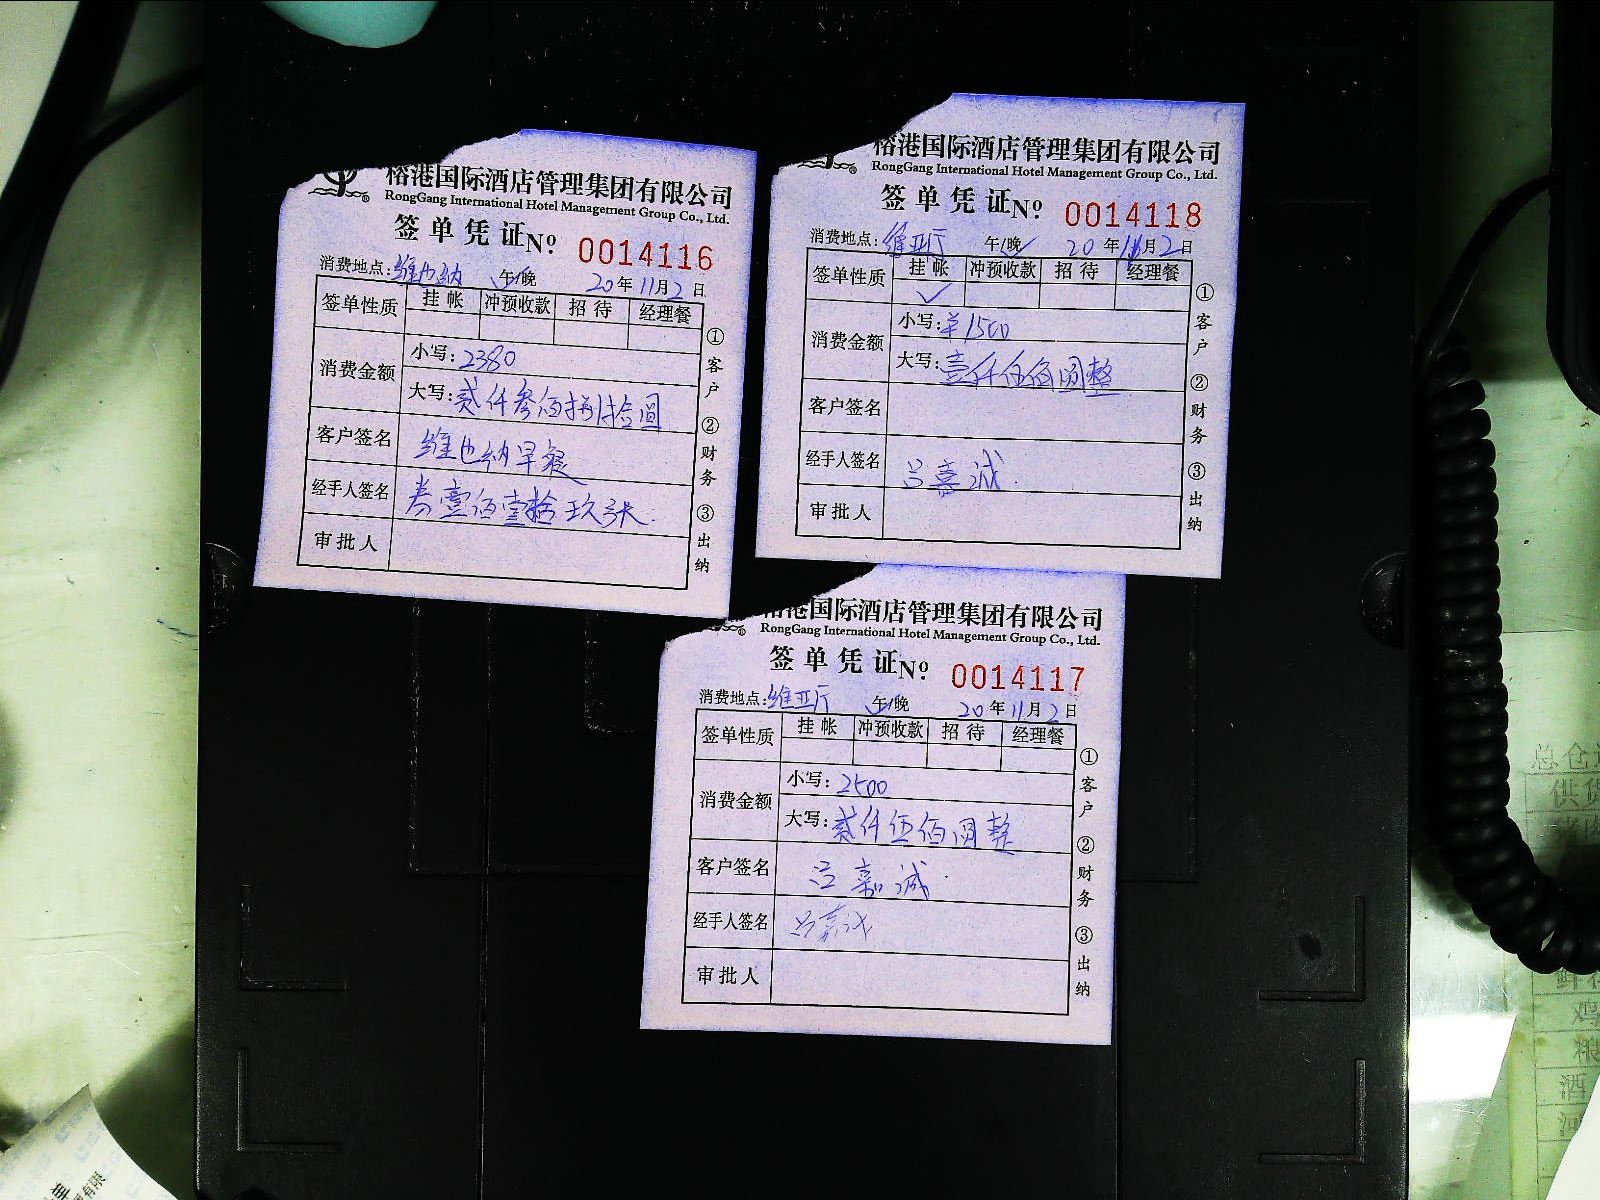 榕港国际酒店管理集团有限公司
RongGang International Hotel Management Group Co., Ltd.
签单凭证 Nº 0014116
消费地点: 维也纳 午/晚 20年11月2日
签单性质 挂帐 冲预收款 招待 经理餐
消费金额 小写: 2380
大写: 贰仟叁佰捌拾圆
客户签名 维也纳早餐
经手人签名 券壹佰壹拾玖张.
审批人
①客户 ②财务 ③出纳
榕港国际酒店管理集团有限公司
RongGang International Hotel Management Group Co., Ltd.
签单凭证 Nº 0014118
消费地点: 维亚厅 午/晚 20年11月2日
签单性质 挂帐 冲预收款 招待 经理餐
✓
消费金额 小写: ¥1500
大写: 壹仟伍佰圆整
客户签名
经手人签名 吕嘉诚.
审批人
①客户 ②财务 ③出纳
榕港国际酒店管理集团有限公司
RongGang International Hotel Management Group Co., Ltd.
签单凭证 Nº 0014117
消费地点: 维亚厅 午/晚 20年11月2日
签单性质 挂帐 冲预收款 招待 经理餐
消费金额 小写: 2500
大写: 贰仟伍佰圆整
客户签名 吕嘉诚.
经手人签名 吕嘉诚
审批人
①客户 ②财务 ③出纳
总仓
供
鸡
粮
酒
单
有限